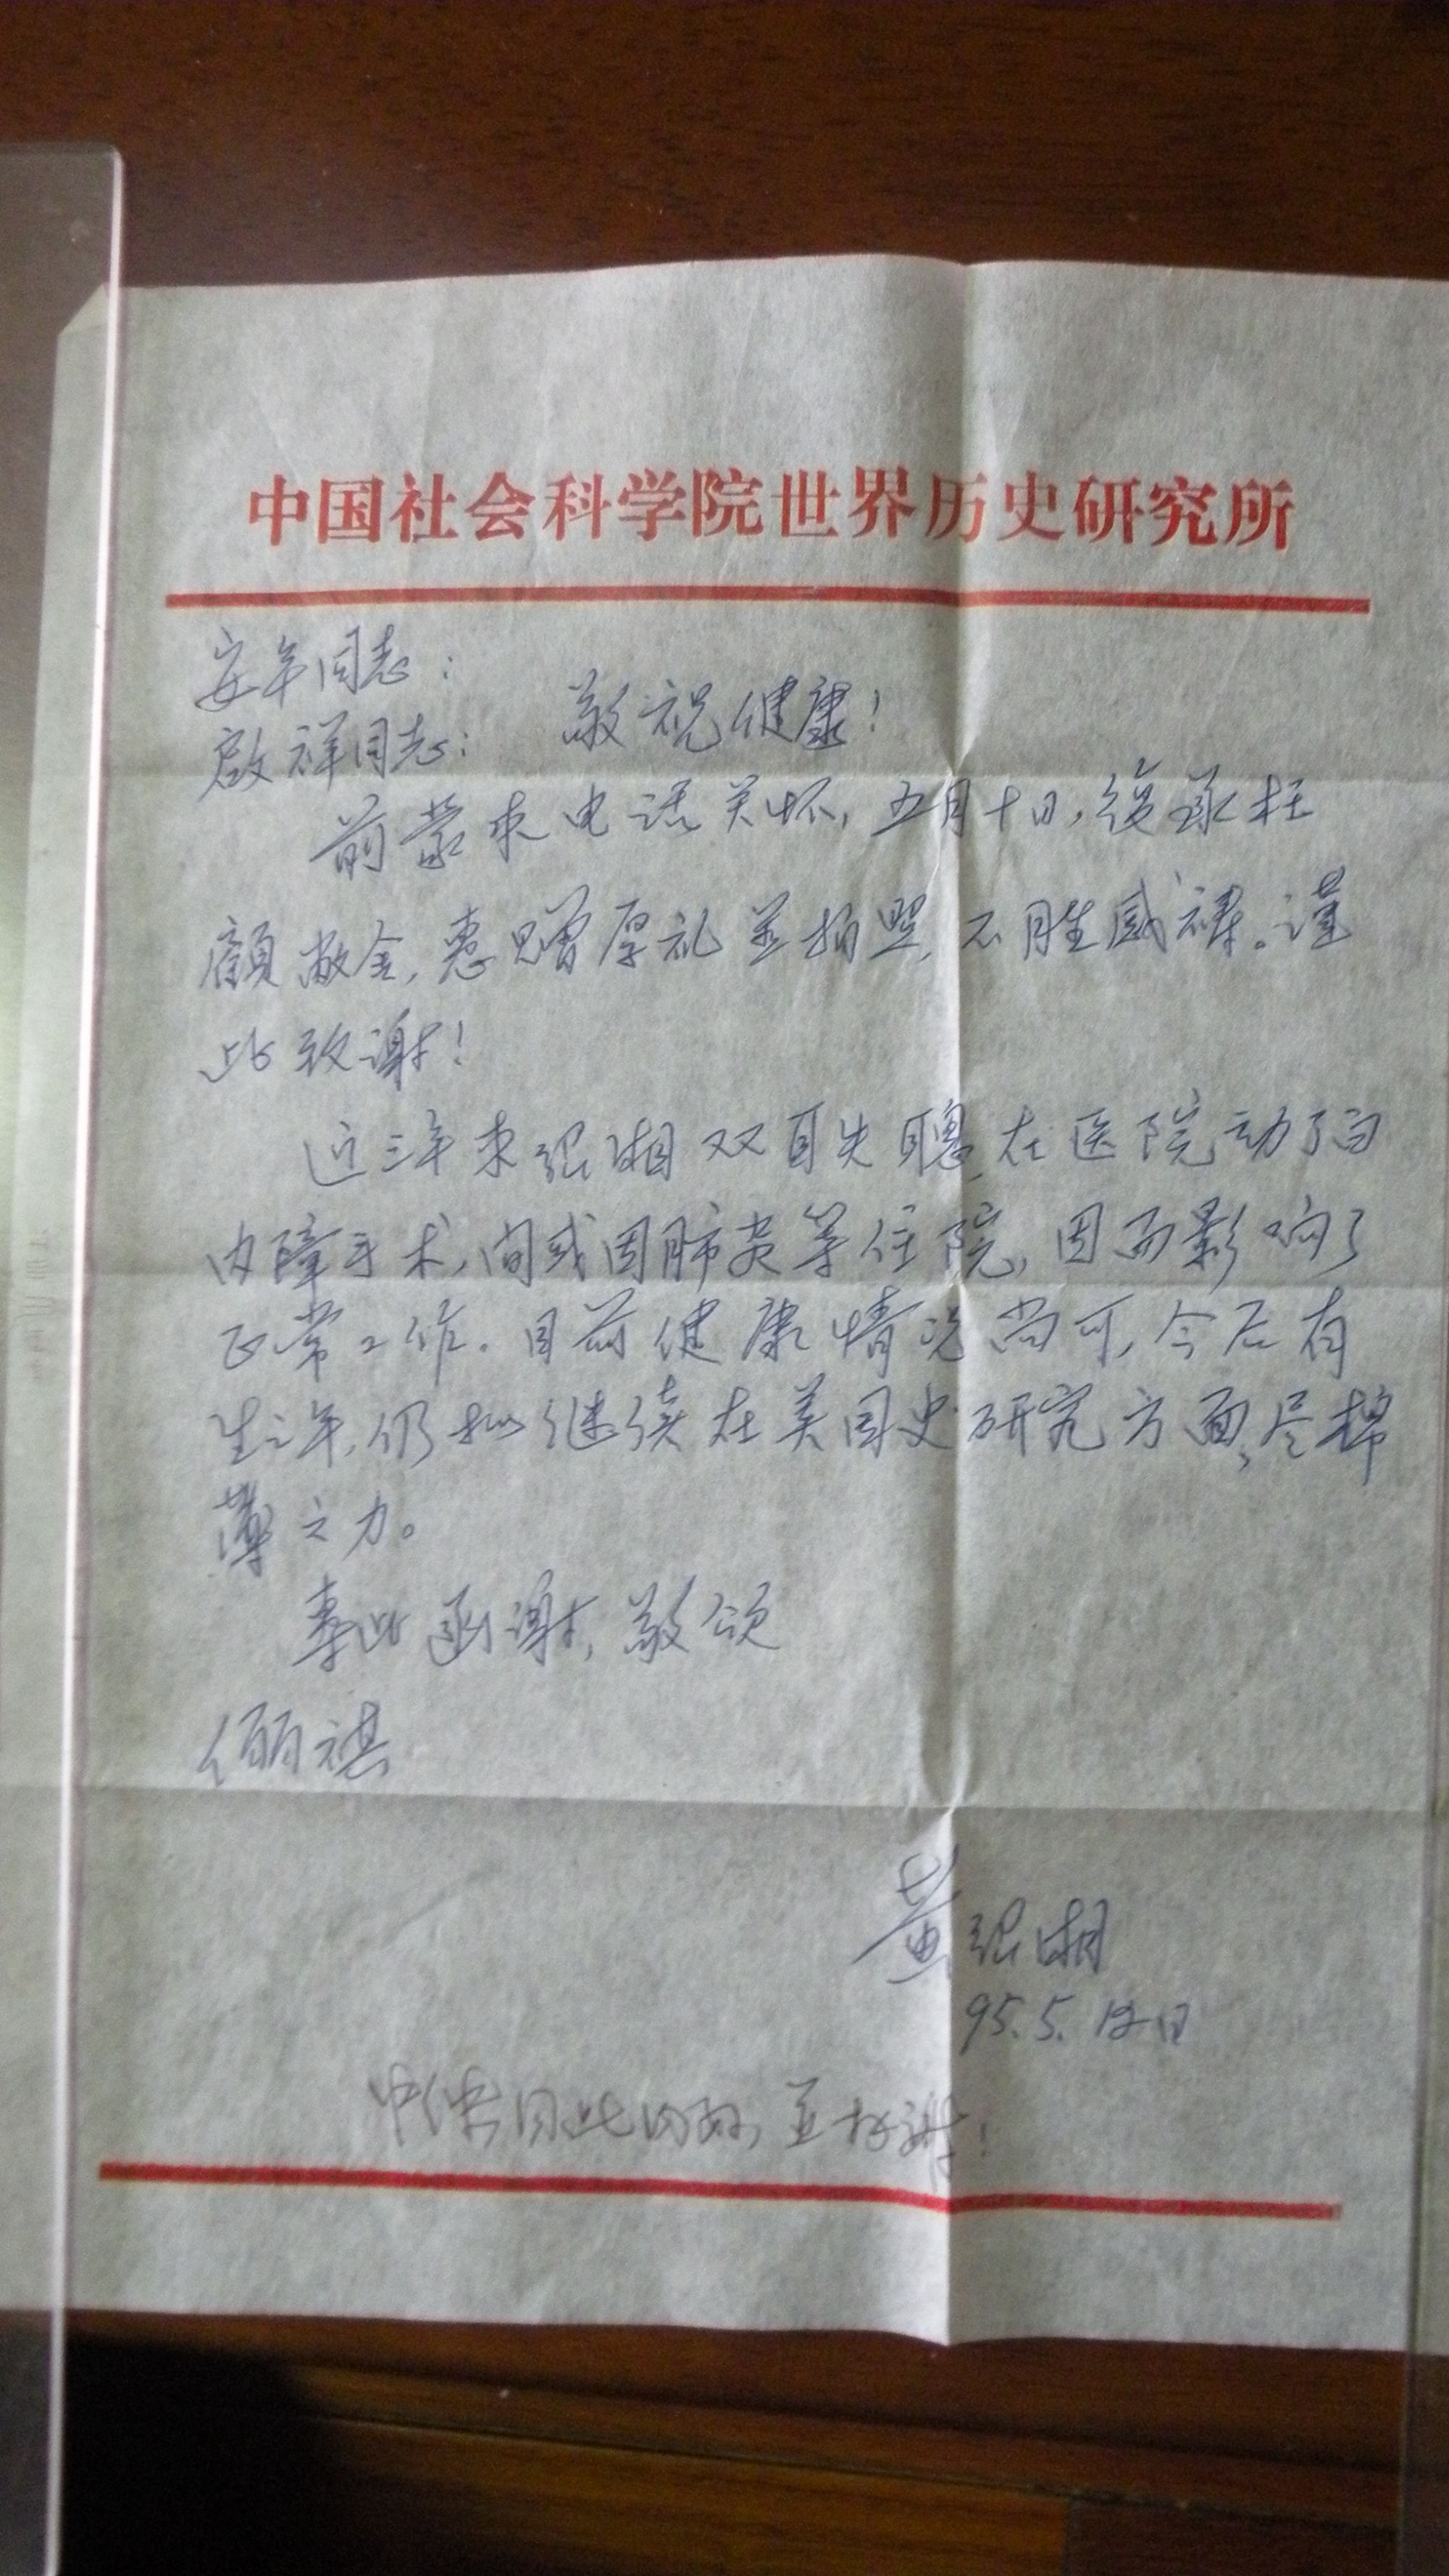 中国社会科学院世界历史研究所
安年同志：
启祥同志： 敬祝健康！
前蒙来电话关怀，五月十日，复承枉
顾敝舍，惠赠厚礼并拍照，不胜感祷。谨
此致谢！
近三年来绍湘双耳失聪，在医院动了白
内障手术，间或因肺炎等住院，因而影响了
正常工作。目前健康情况尚可，今后有
生之年，仍拟继续在美国史研究方面，尽棉
薄之力。
专此函谢，敬颂
俪祺
黄绍湘
95.5.12日
同此问好，并拜谢！